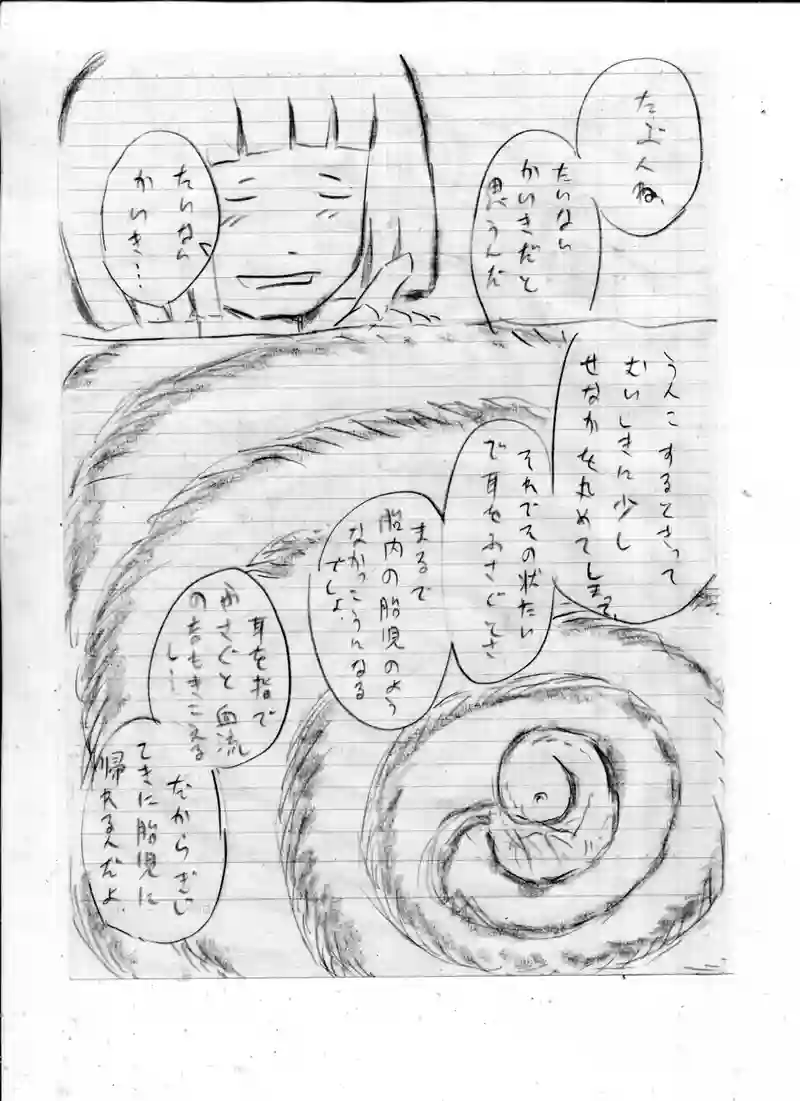 たぶんね、
たいない
かいきだと
思うんだ
たいない
かいき…
うんこするときって
むいしきに少し
せなかを丸めてしまって、
それでその状たい
で耳をふさぐでさ
まるで
胎内の胎児のよう
なかっこうんなる
でしょ、
耳を指で
ふさぐと血流
の音もきこえる
し…
だからぎじ
てきに胎児に
帰れるんだよ、